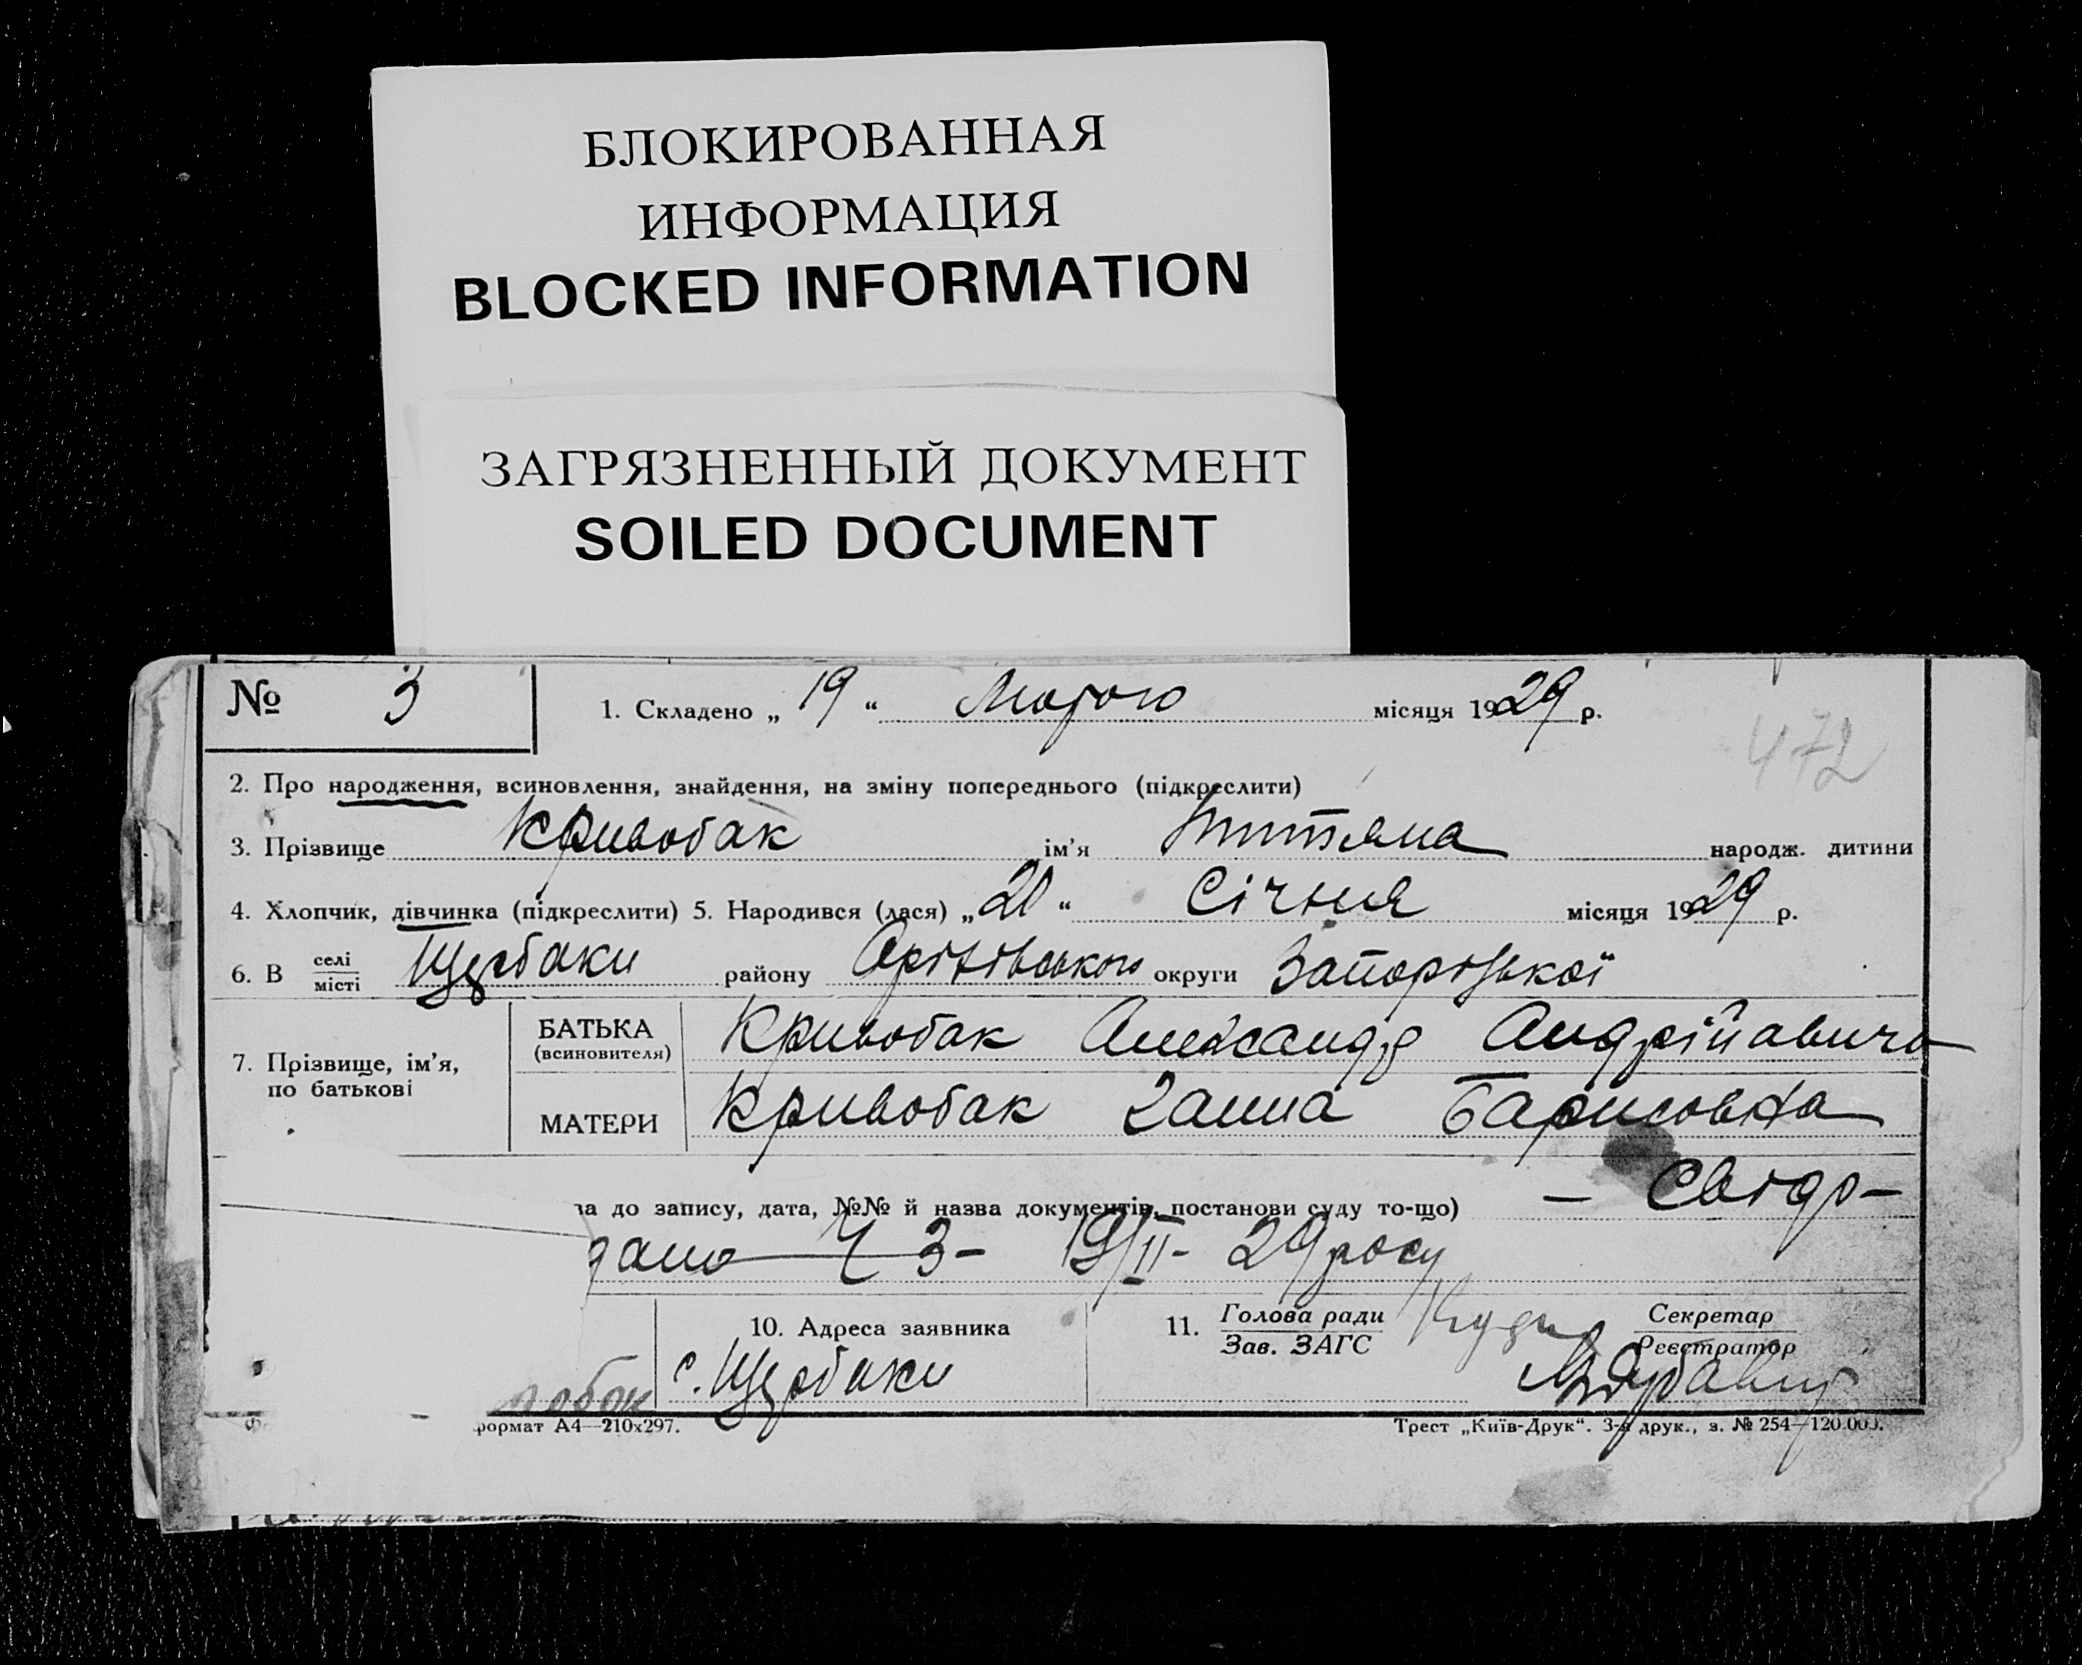 БЛОКИРОВАННАЯ
ИНФОРМАЦИЯ
BLOCKED INFORMATION
ЗАГРЯЗНЕННЫЙ ДОКУМЕНТ
SOILED DOCUMENT
№ 3 1. Складено „ 19 “ Лютого місяця 1929 р.
472
2. Про народження, всиновлення, знайдення, на зміну попереднього (підкреслити)
3. Прізвище Кривобак ім’я народж. дитини
4. Хлопчик, дівчинка (підкреслити) 5. Народився (лася) „ 20 “ Січня місяця 1929 р.
6. В селі місті Щербаки району Оріхівського округи Запорізької
7. Прізвище, ім’я, по батькові
БАТЬКА (всиновителя) Кривобак Александр Андрійавича
МАТЕРИ Кривобак Ганна Барисовна
ва до запису, дата, №№ й назва документів, постанови суду то-що) — Свідр—
дано Ч 3— 19/II— 29 року
10. Адреса заявника 11. Голова ради Зав. ЗАГС Секретар Реєстратор
обак с. Щербаки
формат А4—210х297. Трест „Київ-Друк“. 3-я друк., з. № 254—120.000.